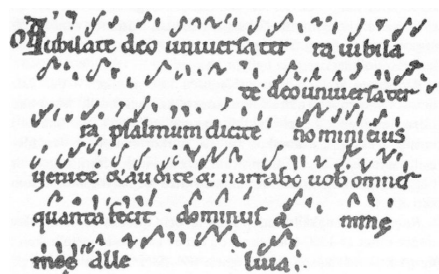 Of Iubilate deo universa ter ra iubila
te deo universa ter
ra psalmum dicite nomini eius
venite & audite & narrabo vob omnes
quanta fecit dominus a nimę
meę alle luia :